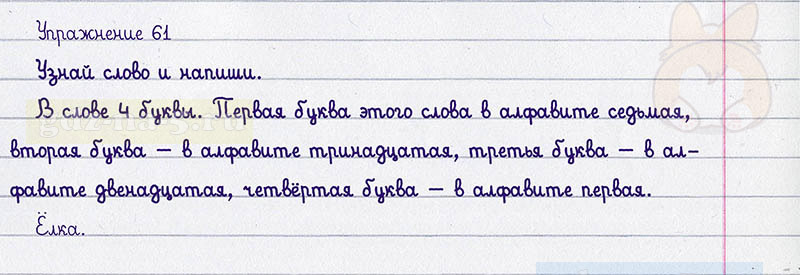 Упражнение 61
Узнай слово и напиши.
В слове 4 буквы. Первая буква этого слова в алфавите седьмая,
вторая буква – в алфавите тринадцатая, третья буква – в ал-
фавите двенадцатая, четвёртая буква – в алфавите первая.
Ёлка.